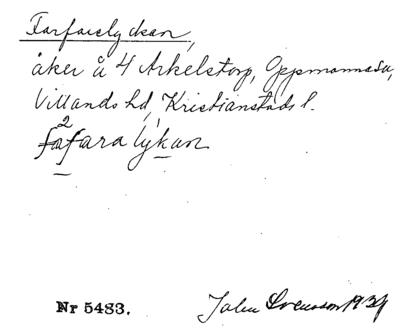 Farfarslyckan,
åker å 4 Arkelstorp, Oppmanna sn,
Villands hd, Kristianstads l.
2
fafara lykan
Nr 5483. John Svensson 1934